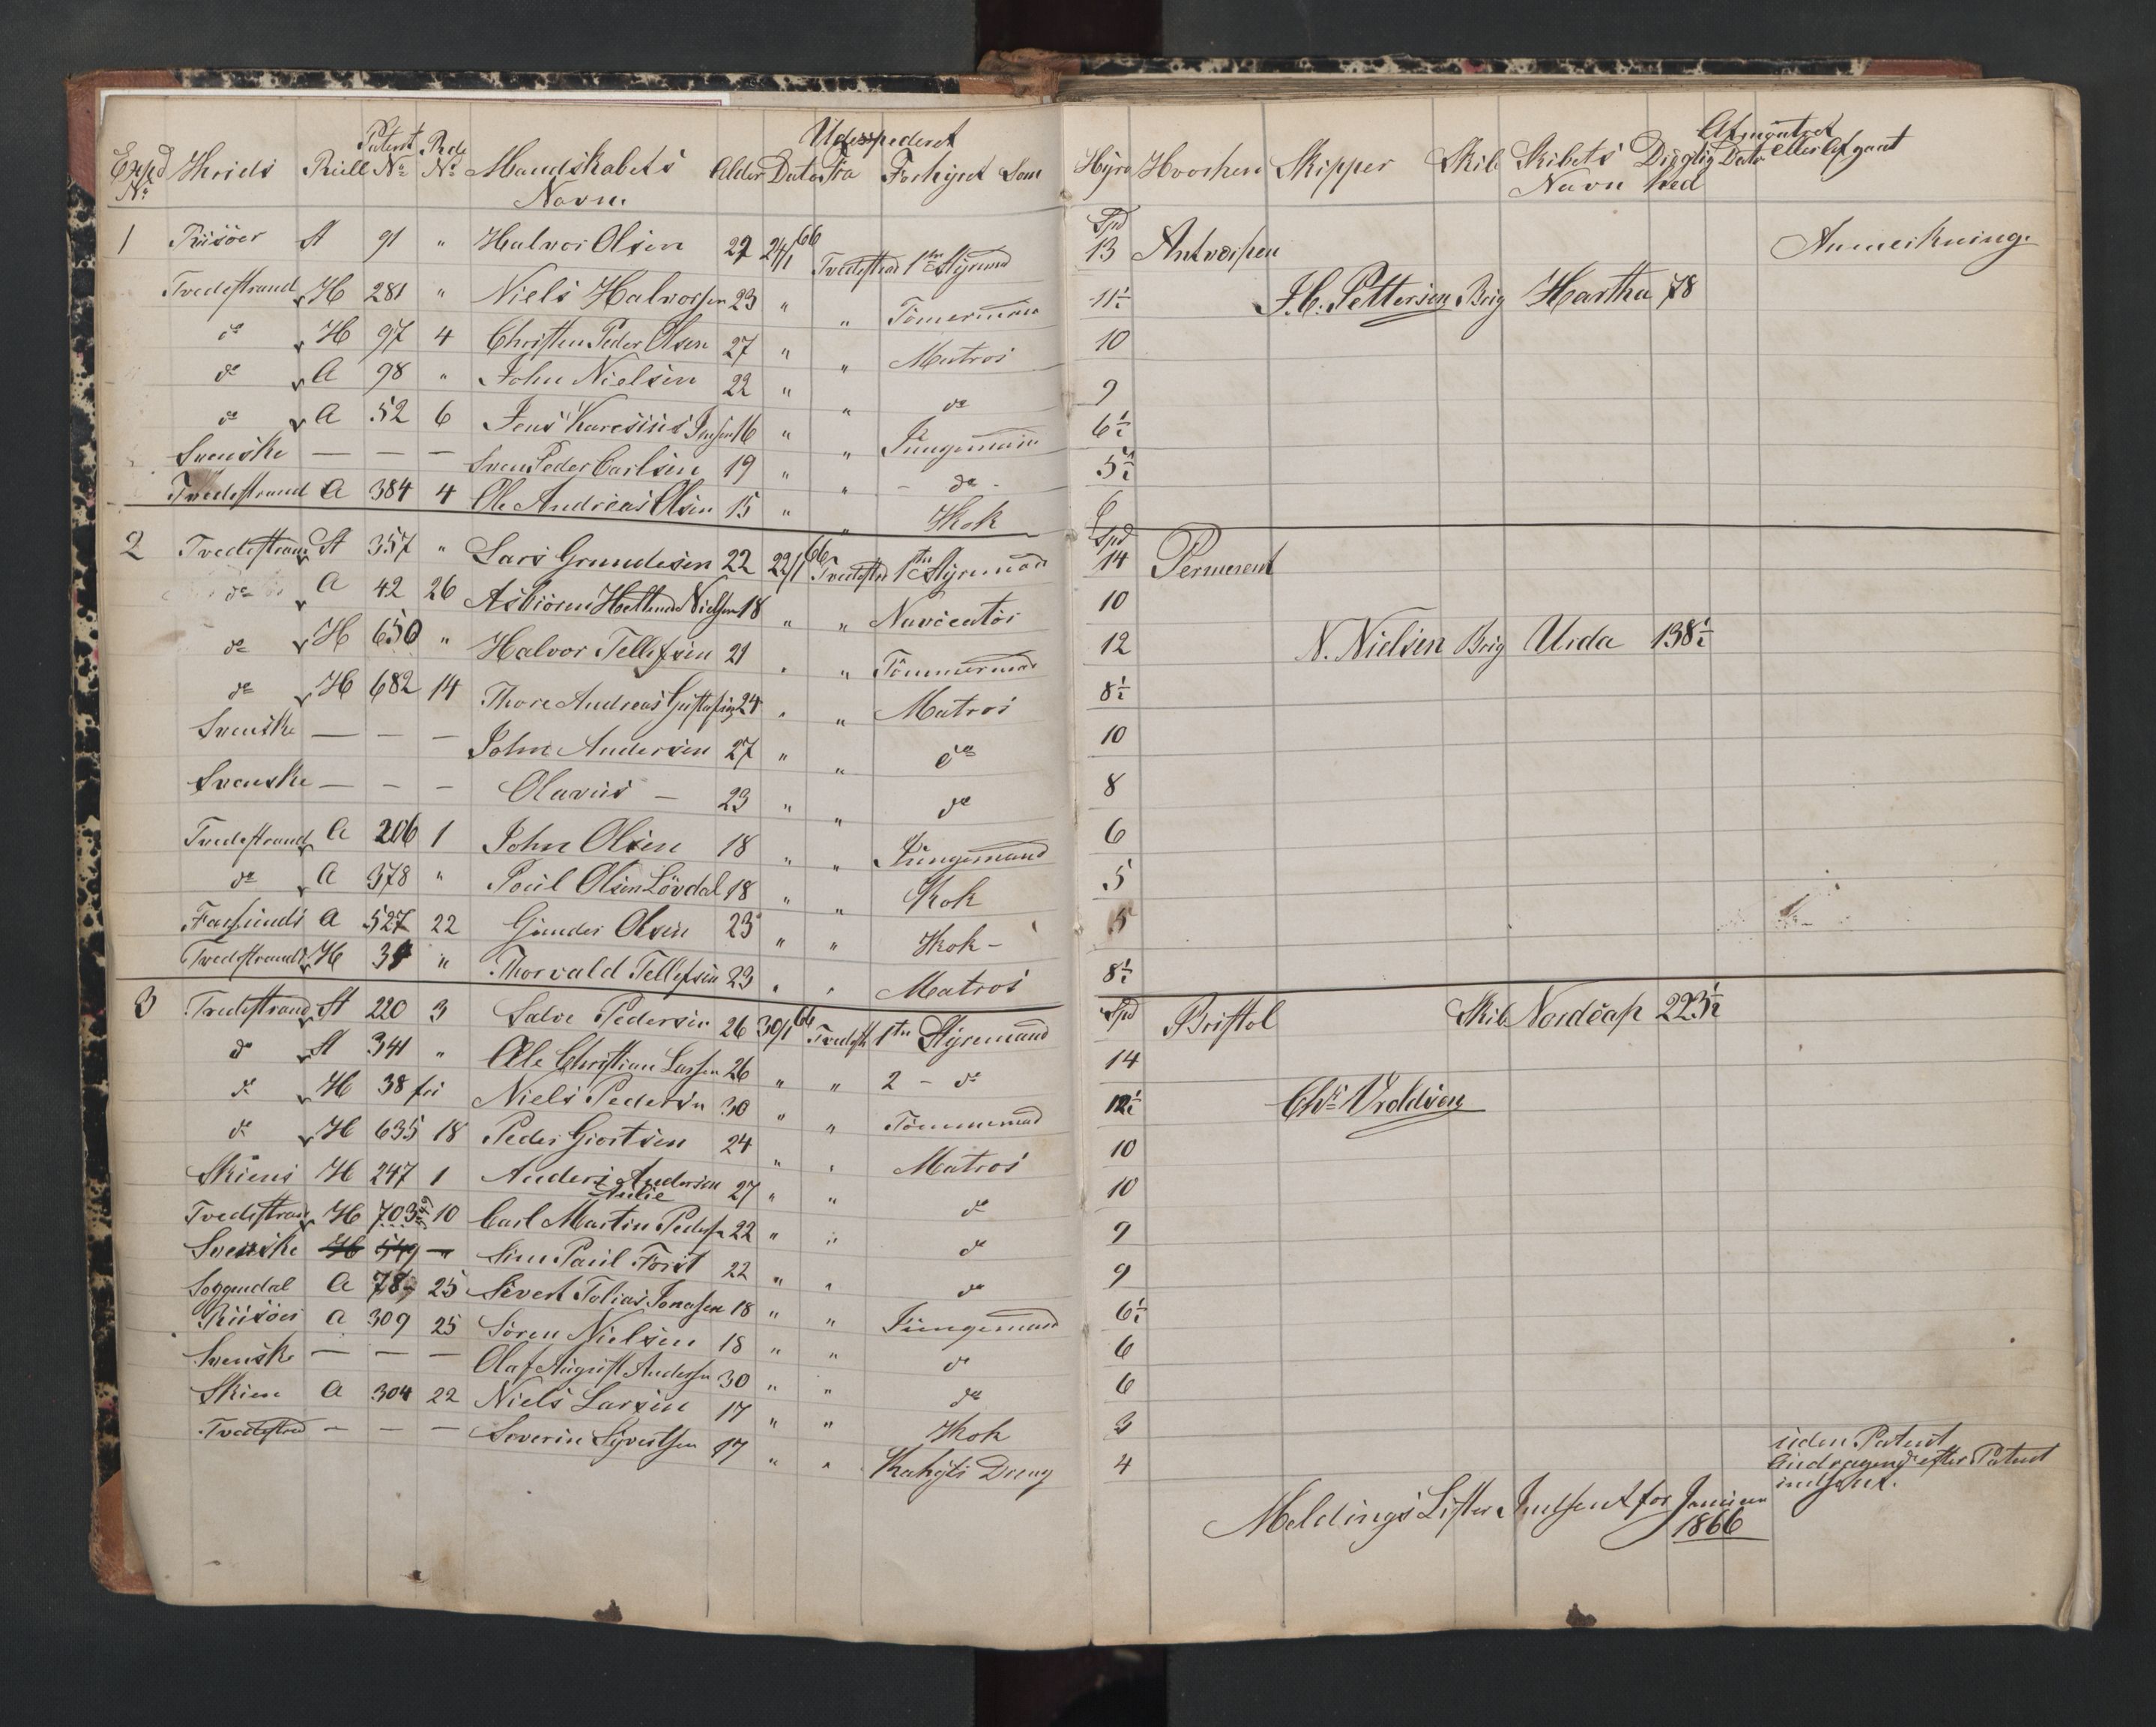 Expd No Krids Rulle Patent No Rode No Mandskabets Navn. Alder Udexpederet Dato Fra Forhyret Som Hyre Hvorhen Skipper Skib Skibets Navn Drægtighed Afmönstret Dato eller Afgaaet
1 Riisöer St 91 " Halvor Olsen 27 24/1 66 Tvedestrand 1ste Styrmd Spd 13 Antverpen Anmerkning.
Tvedestrand H 281 " Niels Halvorsen 23 " " Tömermand 11½ J. C. Pettersen Brig Hartha 78
do H 97 4 Christen Peder Olsen 27 " " Matros 10
do A 98 " John Nielsen 22 " " do 9
do A 52 6 Jens Karesius Jensen 16 " " Jungemand 6½
Svenske — — — Sven Peder Carlsen 19 " " - do - 5½
Tvedestrand A 384 4 Ole Andreas Olsen 15 " " Kok 6
2 Tvedestrand St 357 " Lars Grundesen 22 22/1 66 Tvedestrd 1ste Styremand Spd 14 Permerent
do A 42 26 Asbiören Nielsen 18 " " 10
do H 650 " Halvor Tellefsen 21 " " Tömmermad 12 N. Nielsen Brig Urda 138½
do H 682 14 Thore Andreas Gustafsen 24 " " Matros 8½
Svenske — — — John Andersen 27 " " do 10
Svenske — — — Olavus — 23 " " do 8
Tvedestrand A 206 1 John Olsen 18 " " Jungemand 6
do A 378 " Poul Olsen Lövdal 18 " " Kok 5
Farsunds A 527 22 Gunder Olsen 23 " " Kok - 5
Tvedestrand H 39 " Thorvald Tellefsen 23 " " Matros 8½
3 Tvedestrand St 220 3 Salve Pedersen 26 30/1 66 Tvedestr 1ste Styremand Spd Bristol Skib Nordcap 223½
do St 341 " Ole Christian Larsen 26 " " 2 - do 14
do H 38 fri Niels Pedersen 30 " " Tömmermad 12½ Chr. Vroldsen
do H 635 18 Peder Giortsen 24 " " Matros 10
Skiens H 247 1 Anders Andersen Aulie 27 " " do 10
Tvedestrand H 703 10 Carl Martin Peders 22 " " do 9
Svenske H 549 — Sim Paul Forst 22 " " do 9
Soggendal A 78 25 Sivert Tobias Jonasen 18 " " Jungemand 6½
Riisöer A 309 25 Sören Nielsen 18 " " do 6
Svenske — — — Olaf August Andersen 30 " " do 6
Skien A 304 22 Niels Larsen 17 " " Kok 3
Tvedestrd — — — Severin Syvertsen 17 " " Kahyts Dreng 4 uden Patent
Andragende efter Patent
indsent.
Meldings Lister Indsent for Januar
1866